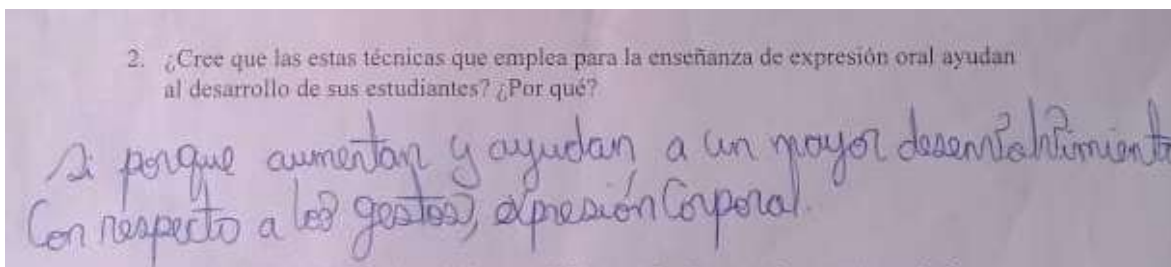 2. ¿Cree que las estas técnicas que emplea para la enseñanza de expresión oral ayudan
al desarrollo de sus estudiantes? ¿Por qué?
Si porque aumentan y ayudan a un mayor
Con respecto a los gestos, expresión Corporal.